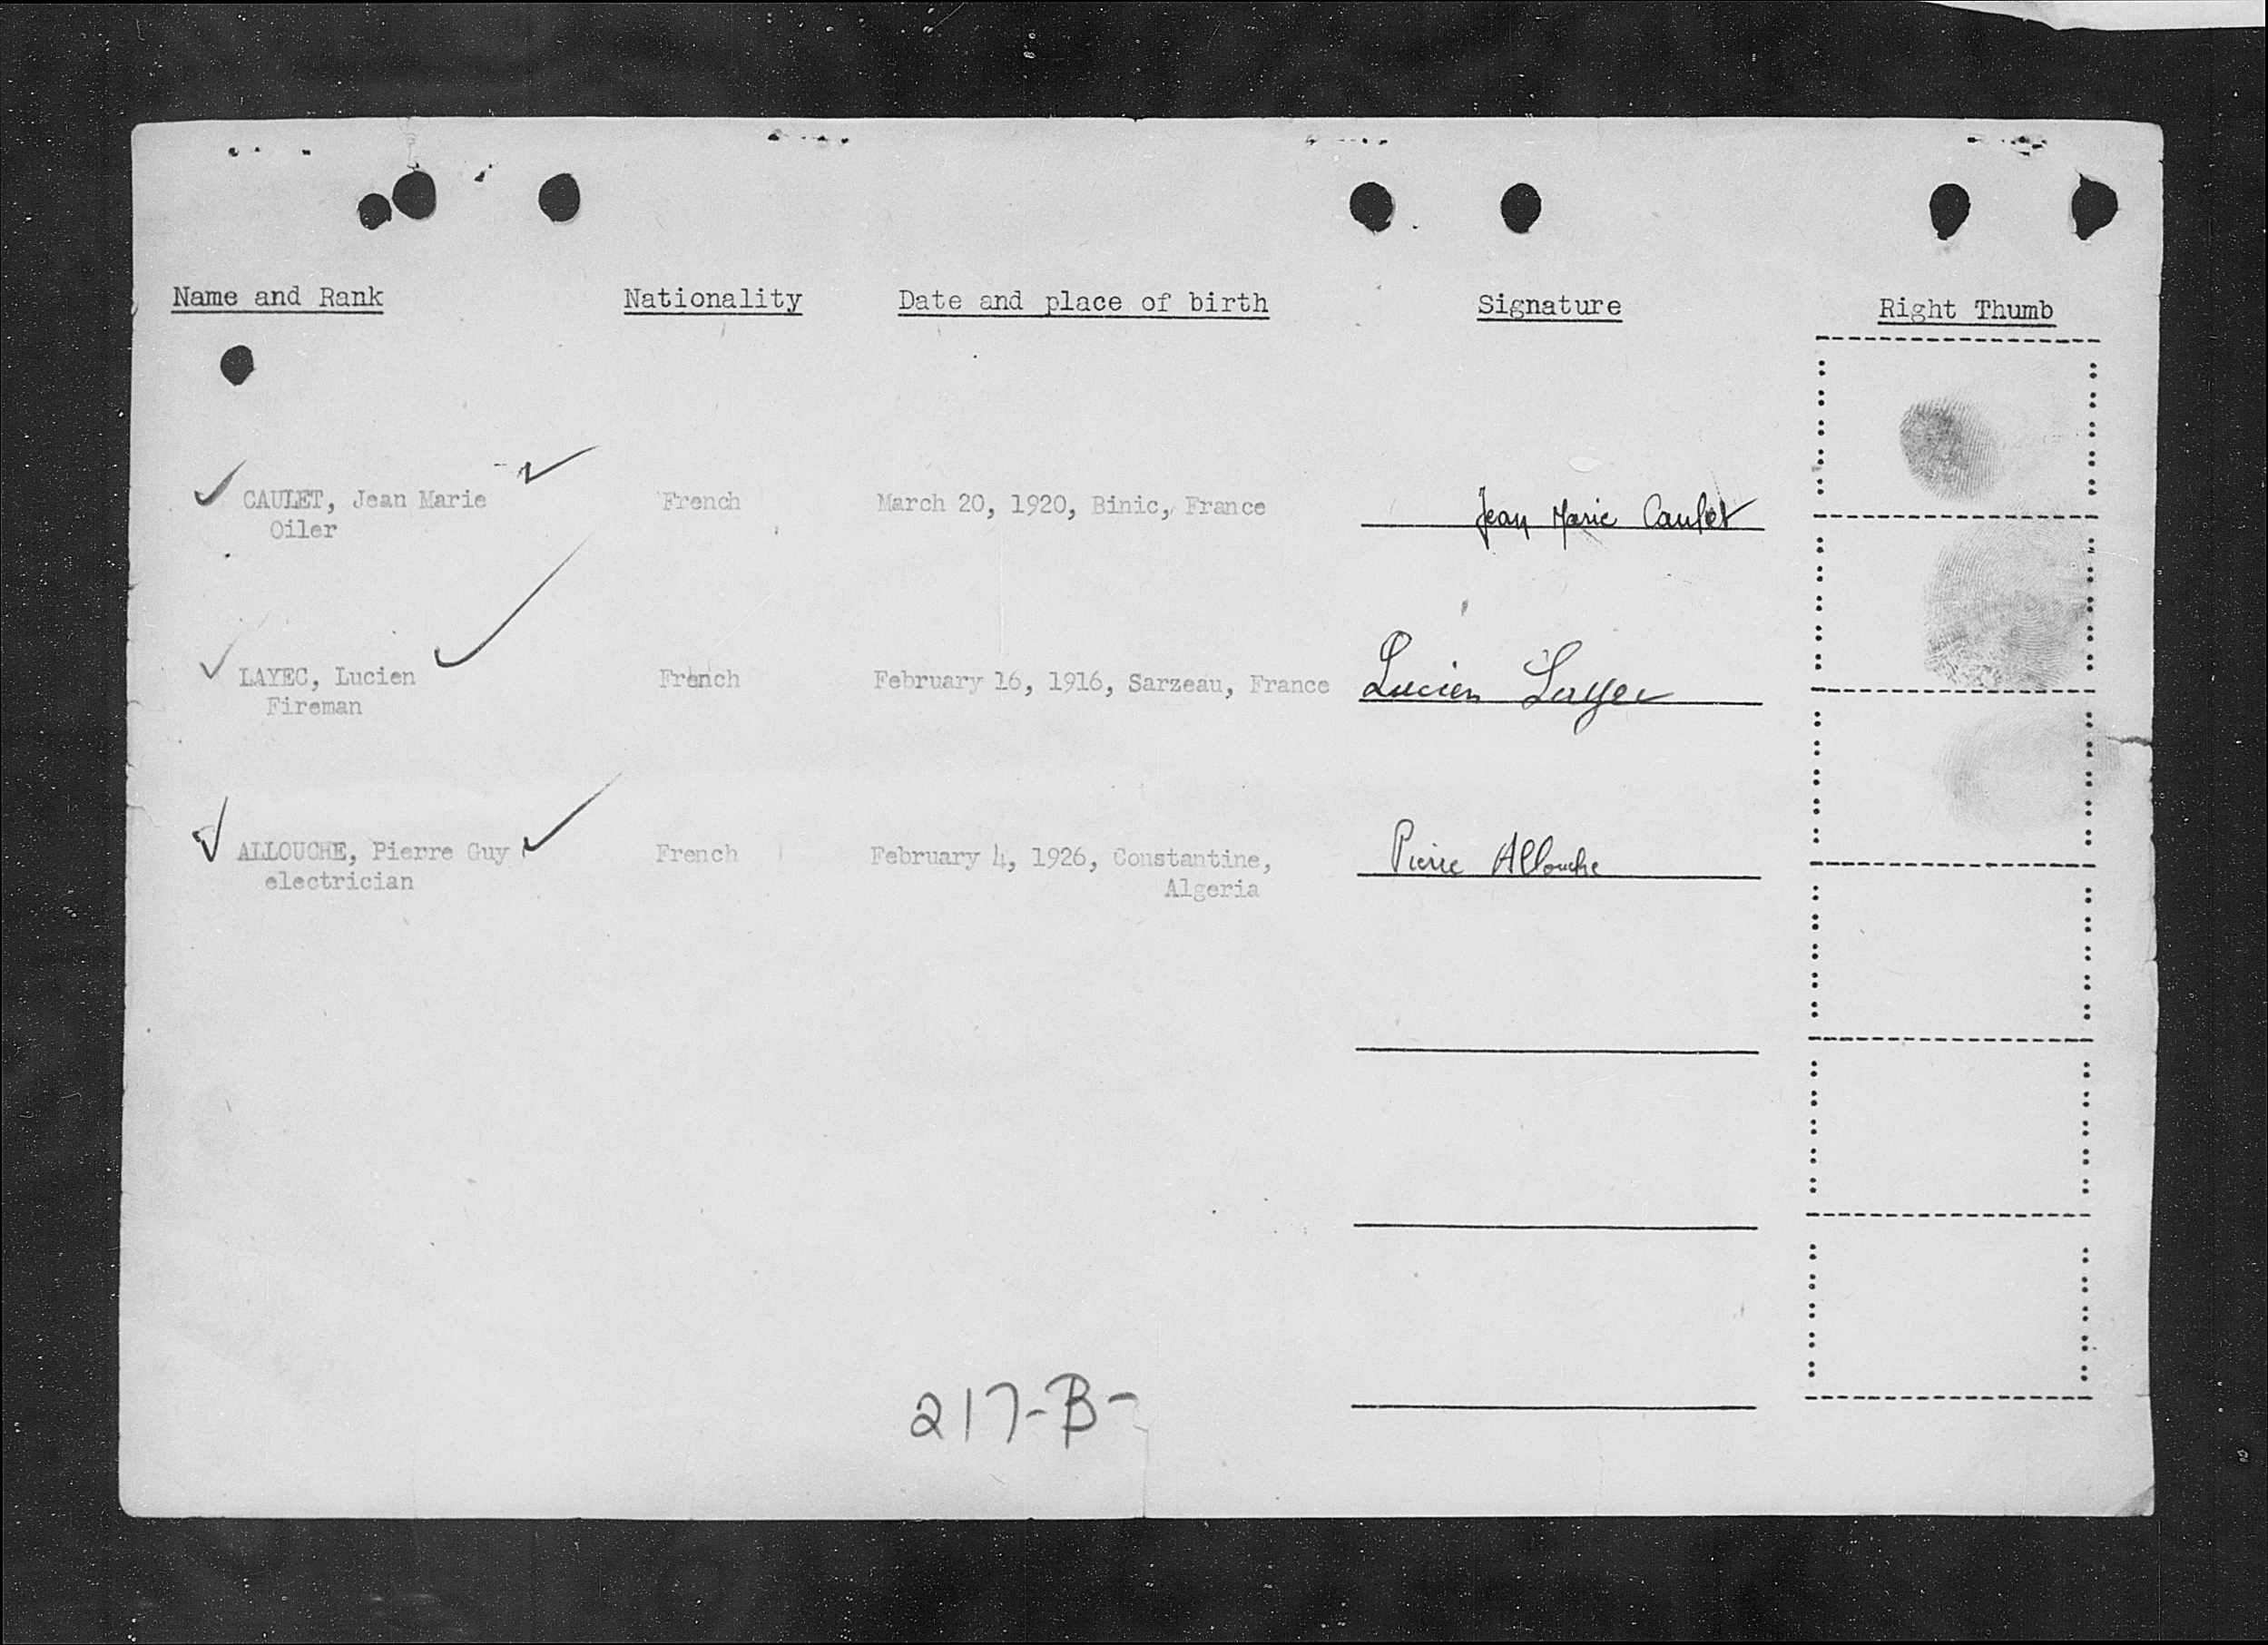 Name and Rank Nationality Date and place of birth Signature Right Thumb
CAULET, Jean Marie French March 20, 1920, Binic, France Jean Marie Caulet
Oiler
LAYEC, Lucien French February 16, 1916, Sarzeau, France Lucien Layec
Fireman
ALLOUCHE, Pierre Guy French February 4, 1926, Constantine, Pierre Allouche
electrician Algeria
217-B-